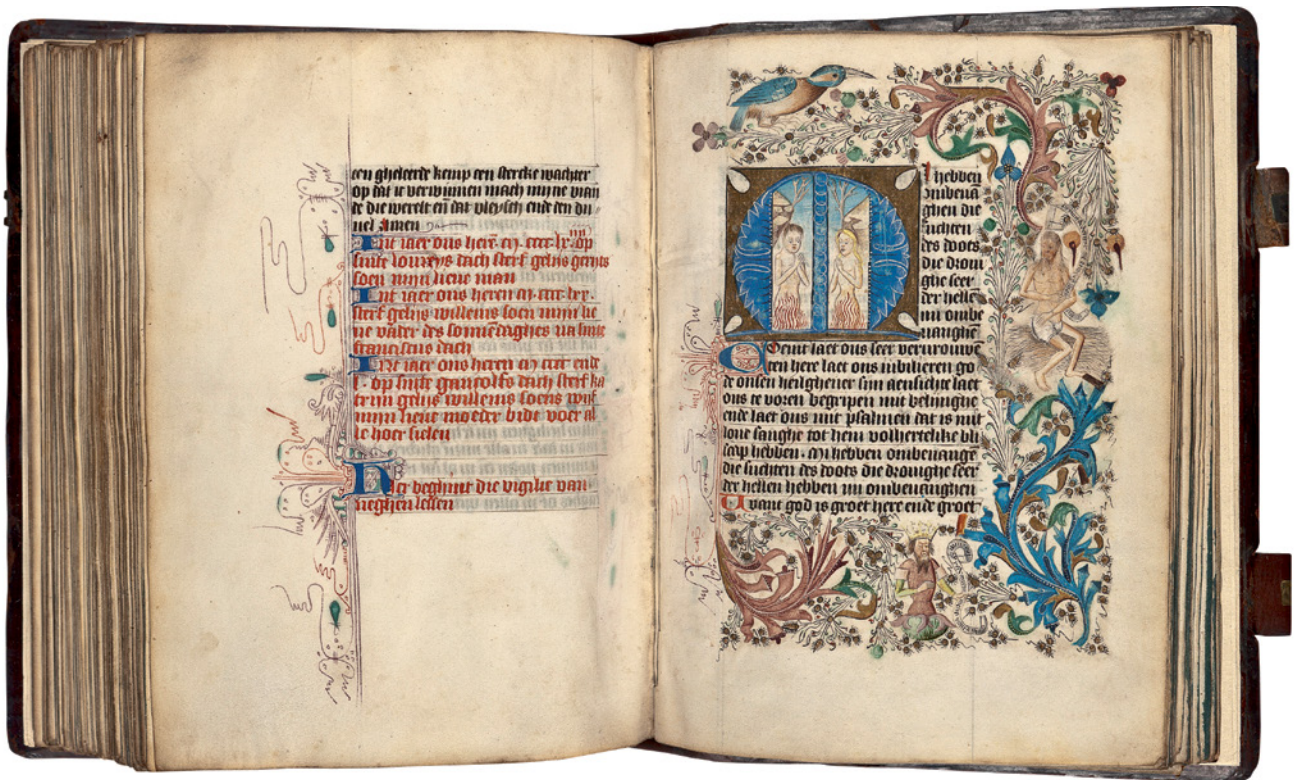 een gheleerde kemp een stercke wachter
op dat ic verwinnen mach myne vian
de die werelt en̄ dat vleysch ende den du
uel Amen
Int iaer ons herē m cccc lx iiii op
sinte loureys dach sterf gelijs gerijts
soen mijn lieue man
Int iaer ons heren m cccc lxx
sterf gelijs willems soen mijn lie
ue vader des sonnēdaghes na sinte
franciscus dach
Int iaer ons heren m cccc ende
l op sinte gangolfs dach sterf ka
trijn gelijs willems soens wijf
mijn lieue moeder bidt voer al
le hoer sielen
Hier beghint die vigilie van
neghen lessen
Mi hebben
ombeuā
ghen die
suchten
des doots
die drou
ghe seer
der helle
mi ombe
uanghē
Coemt laet ons seer vervrouwe
den here laet ons iubilieren go
de onsen heilgheuer sijn aensichte laet
ons te voren begripen mit belijnghe
ende laet ons mit psalmen dat is mit
loue sanghe tot hem volhertelike bli
scap hebben. Mi hebben ombeuange
die suchten des doots die drouighe seer
der hellen hebben mi ombeuanghen
Want god is groet here ende groet